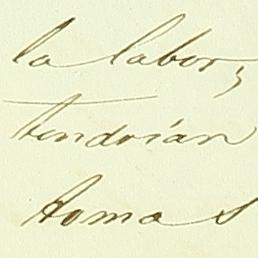 la labor y
tendrian
toma s